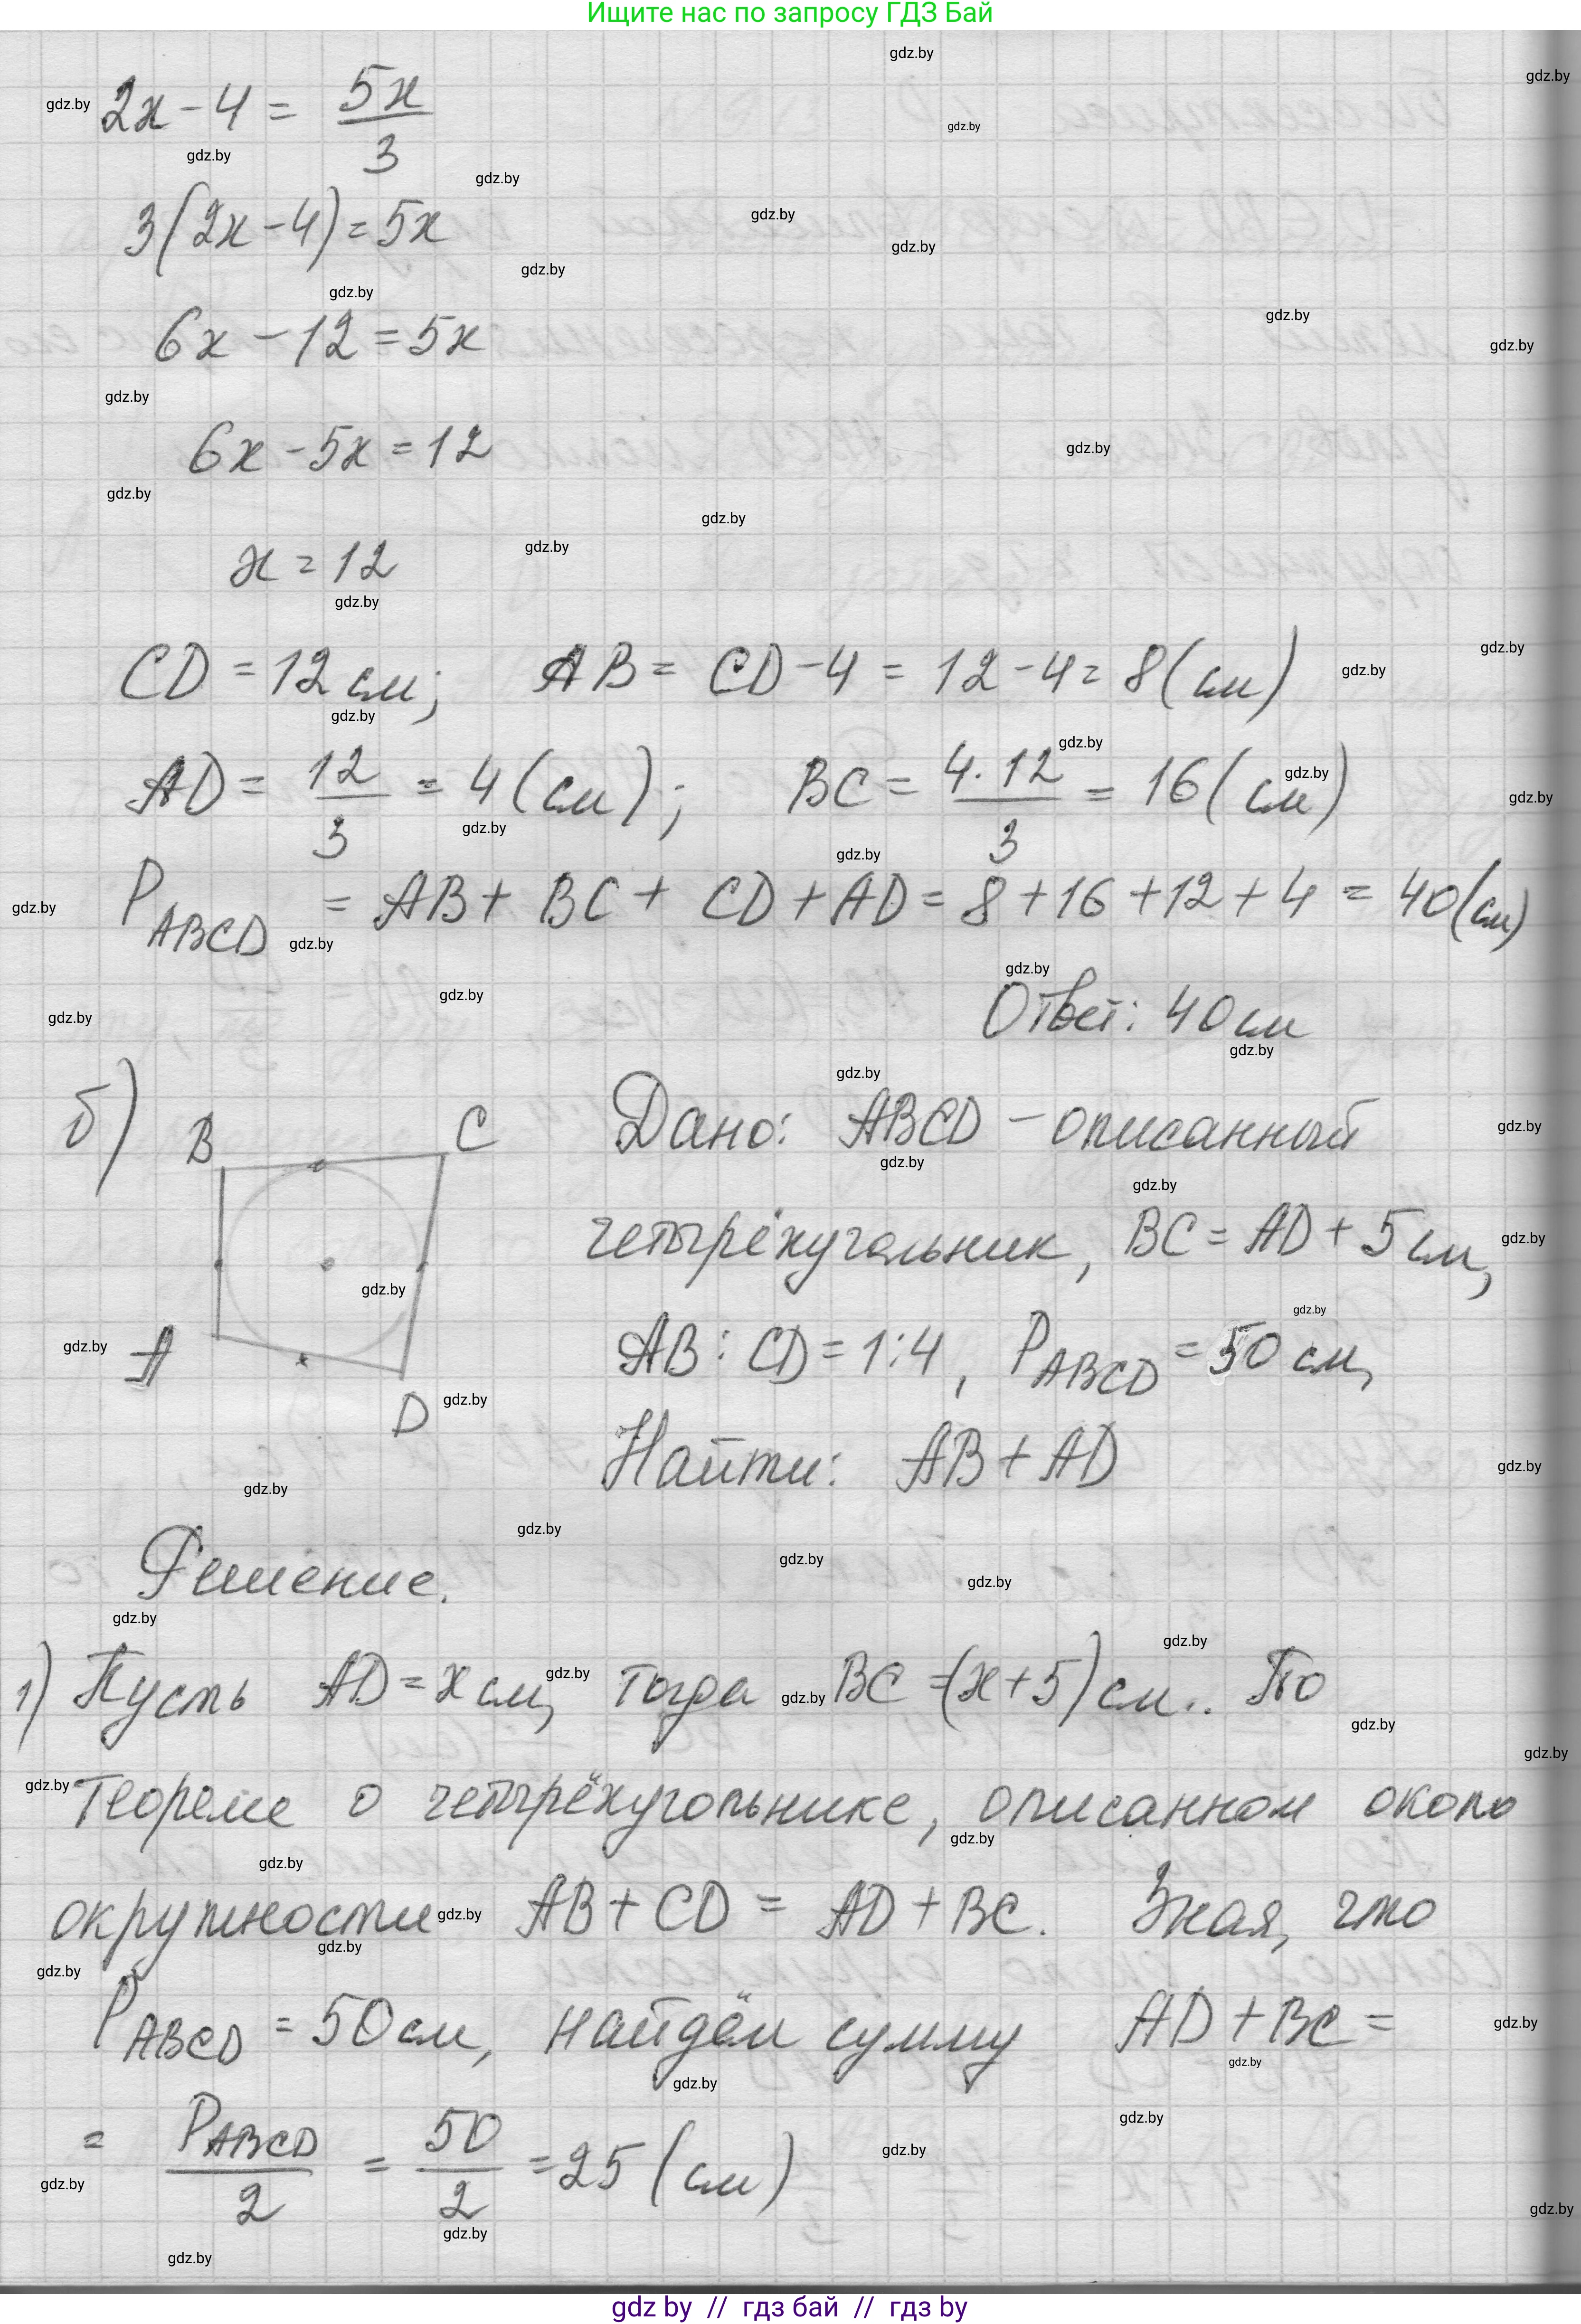 Ищите нас по запросу ГДЗ Бай
2x - 4 = 5x/3
3(2x - 4) = 5x
6x - 12 = 5x
6x - 5x = 12
x = 12
CD = 12 см; AB = CD - 4 = 12 - 4 = 8 (см)
AD = 12/3 = 4 (см); BC = 4·12/3 = 16 (см)
P ABCD = AB + BC + CD + AD = 8 + 16 + 12 + 4 = 40 (см)
Ответ: 40 см
б) B C A D
Дано: ABCD - описанный
четырёхугольник, BC = AD + 5 см,
AB : CD = 1 : 4, P ABCD = 50 см,
Найти: AB + AD
Решение.
1) Пусть AD = x см, тогда BC = (x + 5) см.. По
теореме о четырёхугольнике, описанном около
окружности AB + CD = AD + BC. Зная, что
P ABCD = 50 см, найдём сумму AD + BC =
= P ABCD/2 = 50/2 = 25 (см)
gdz by // гдз бай // гдз by